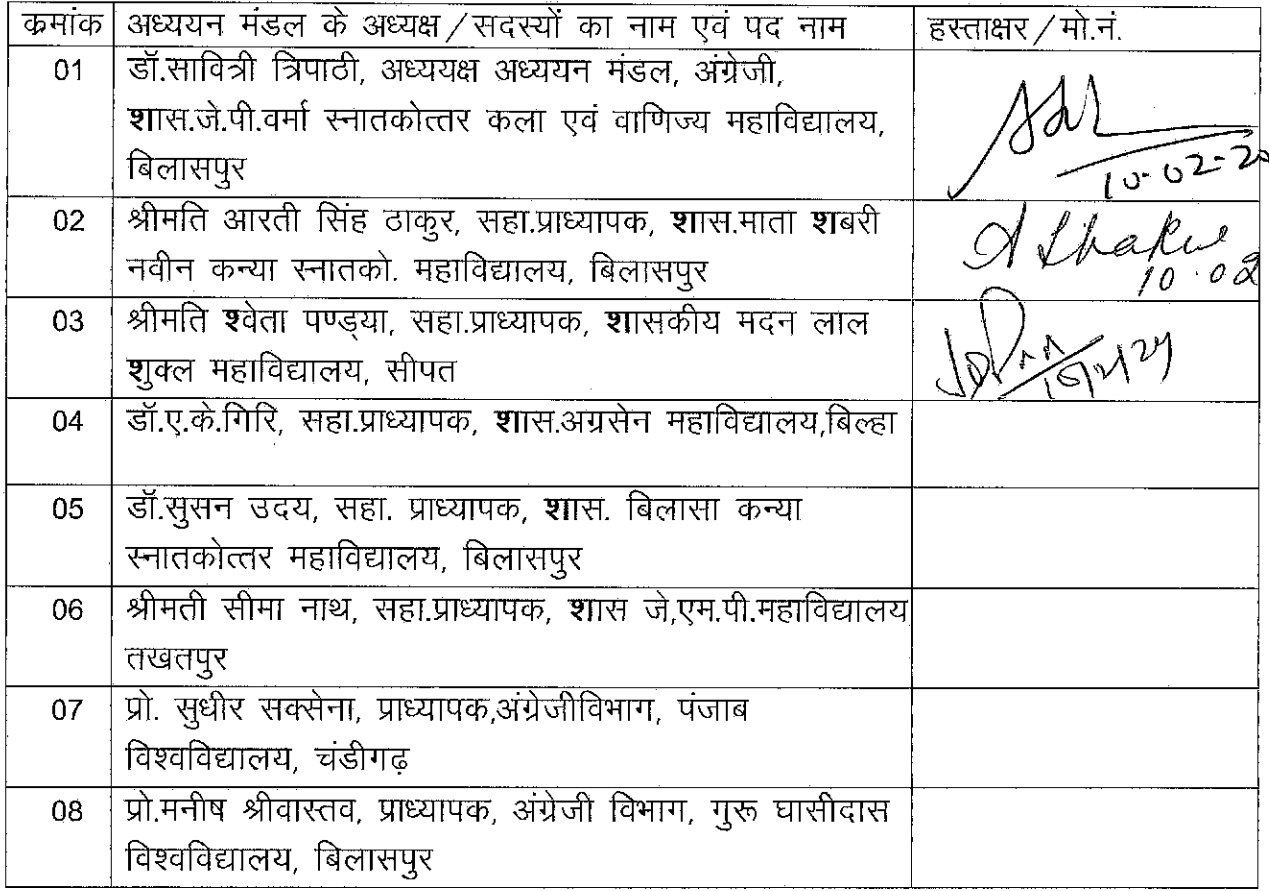 क्रमांक अध्ययन मंडल के अध्यक्ष/सदस्यों का नाम एवं पद नाम हस्ताक्षर/मो.नं.
01 डॉ.सावित्री त्रिपाठी, अध्ययक्ष अध्ययन मंडल, अंग्रेजी,
शास.जे.पी.वर्मा स्नातकोत्तर कला एवं वाणिज्य महाविद्यालय,
बिलासपुर 10-02-20
02 श्रीमति आरती सिंह ठाकुर, सहा.प्राध्यापक, शास.माता शबरी
नवीन कन्या स्नातको. महाविद्यालय, बिलासपुर 10.02
03 श्रीमति श्वेता पण्ड्या, सहा.प्राध्यापक, शासकीय मदन लाल
शुक्ल महाविद्यालय, सीपत
04 डॉ.ए.के.गिरि, सहा.प्राध्यापक, शास.अग्रसेन महाविद्यालय,बिल्हा
05 डॉ.सुसन उदय, सहा. प्राध्यापक, शास. बिलासा कन्या
स्नातकोत्तर महाविद्यालय, बिलासपुर
06 श्रीमती सीमा नाथ, सहा.प्राध्यापक, शास जे,एम.पी.महाविद्यालय
तखतपुर
07 प्रो. सुधीर सक्सेना, प्राध्यापक,अंग्रेजीविभाग, पंजाब
विश्वविद्यालय, चंडीगढ़
08 प्रो.मनीष श्रीवास्तव, प्राध्यापक, अंग्रेजी विभाग, गुरू घासीदास
विश्वविद्यालय, बिलासपुर